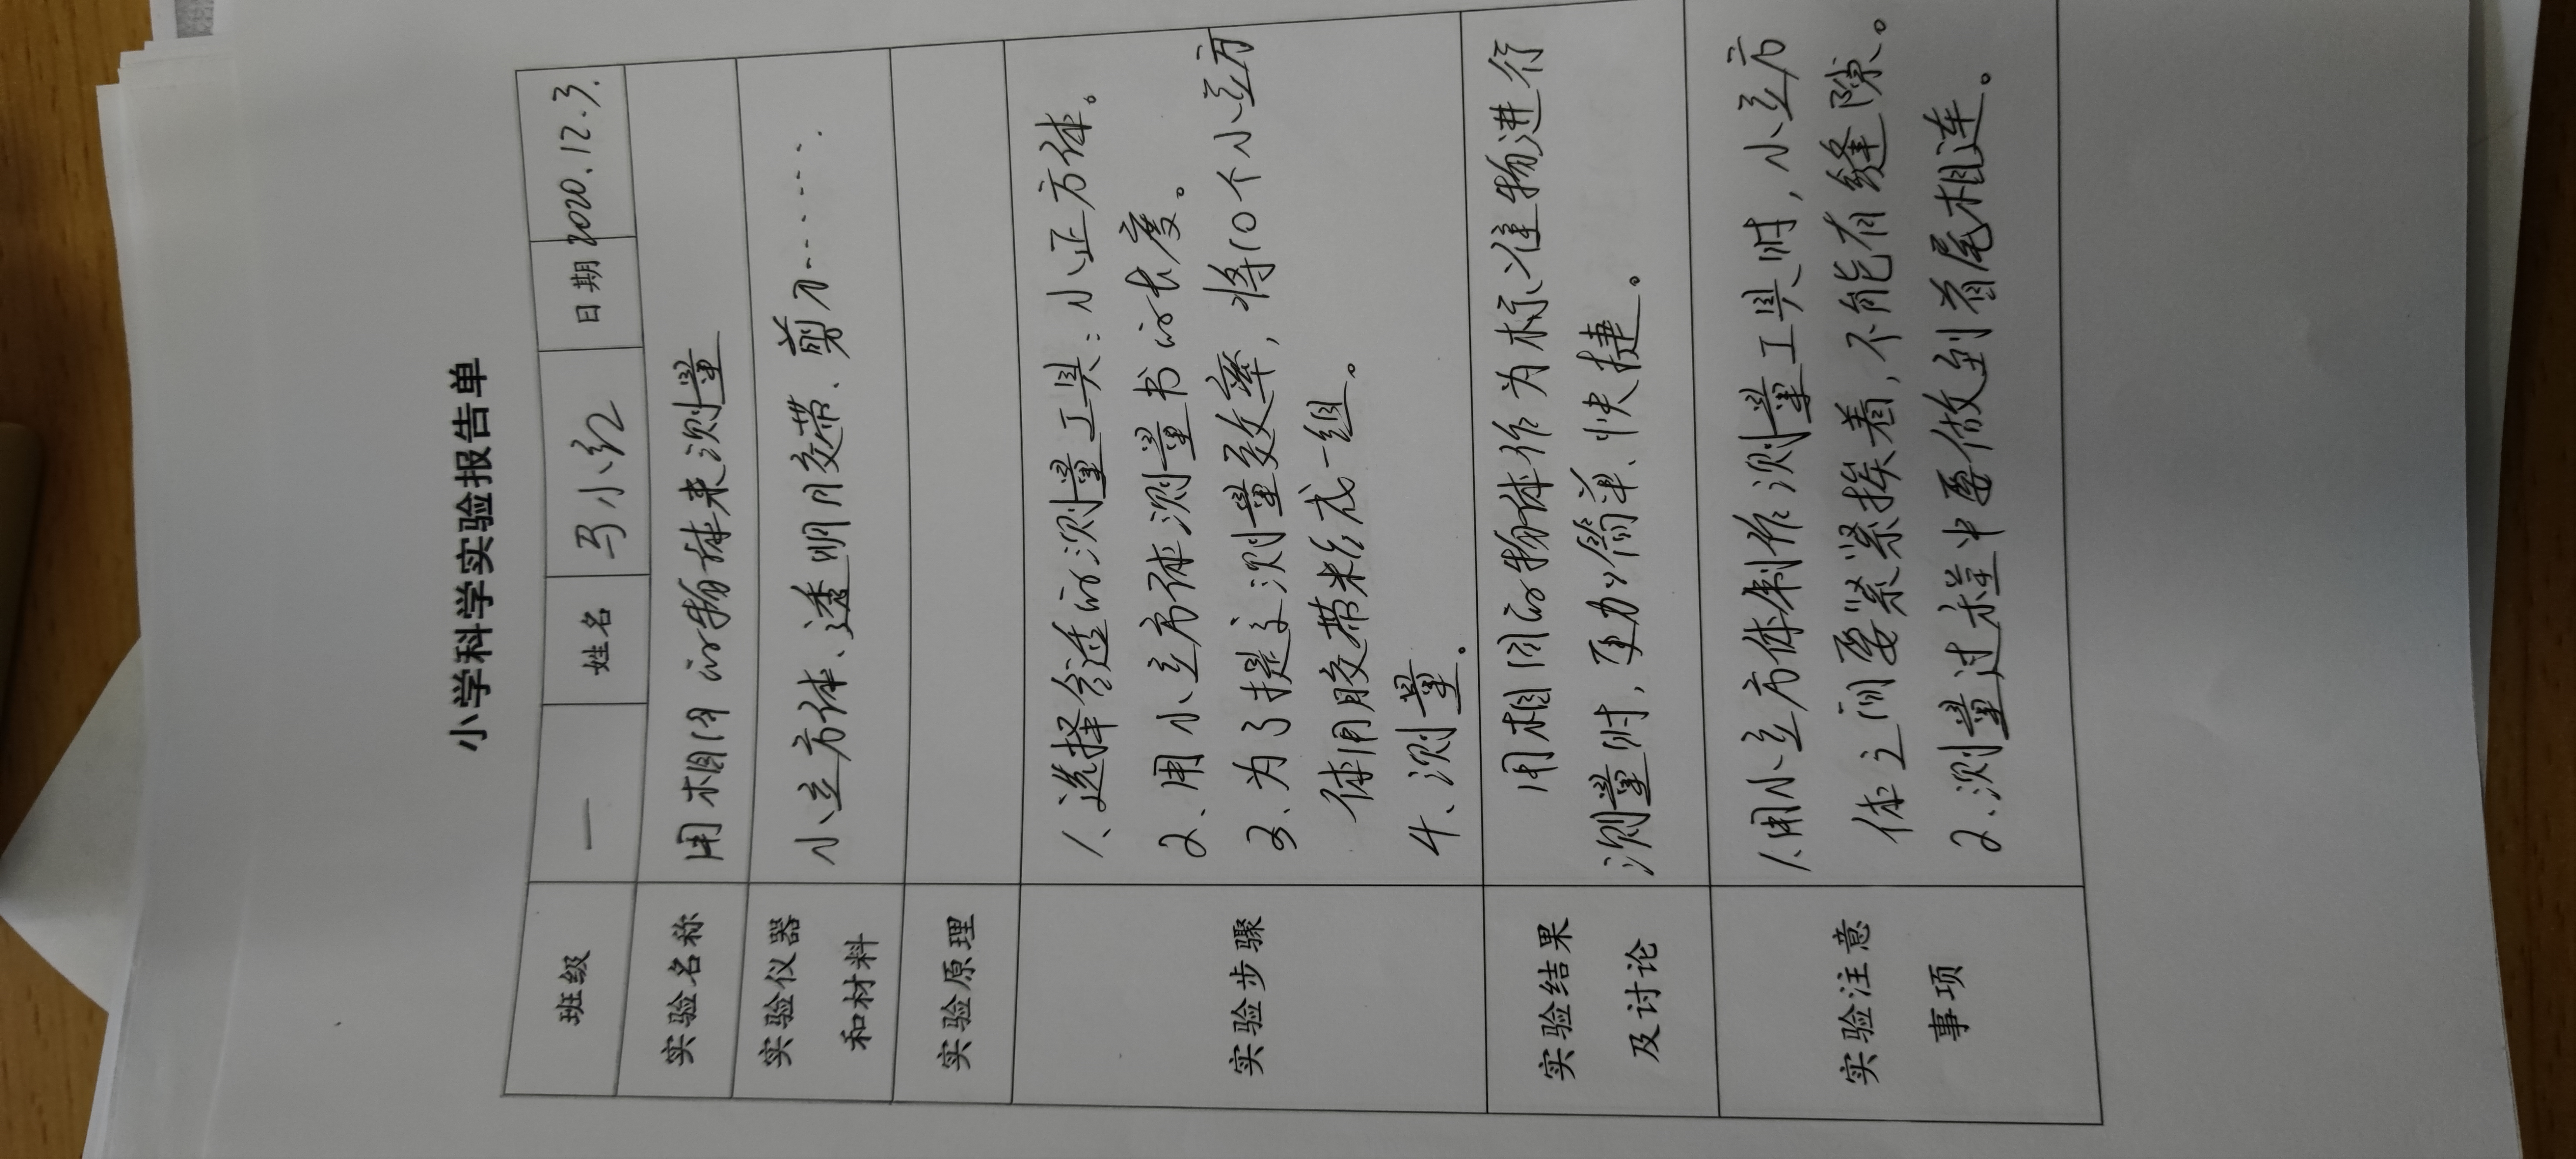 小学科学实验报告单
班级 一 姓名 马小红 日期 2020.12.3.
实验名称 用相同的物体来测量
实验仪器 小立方体、透明胶带、剪刀……
和材料
实验原理
实验步骤
1、选择合适的测量工具：小正方体。
2、用小立方体测量书的长度。
3、为了提高测量效率，将10个小立方
体用胶带粘成一组。
4、测量。
实验结果
及讨论
用相同的物体作为标准物进行
测量时，更加简单、快捷。
实验注意
事项
1、用小立方体制作测量工具时，小立方
体之间要紧紧挨着，不能有缝隙。
2、测量过程中要做到首尾相连。